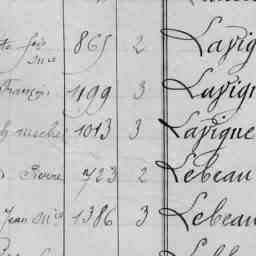 865 2 Lavig
François 1199 3 Lavign
1013 3 Lavigne
Pierre 723 2 Lebeau
Jean Mie 1386 3 Lebeau